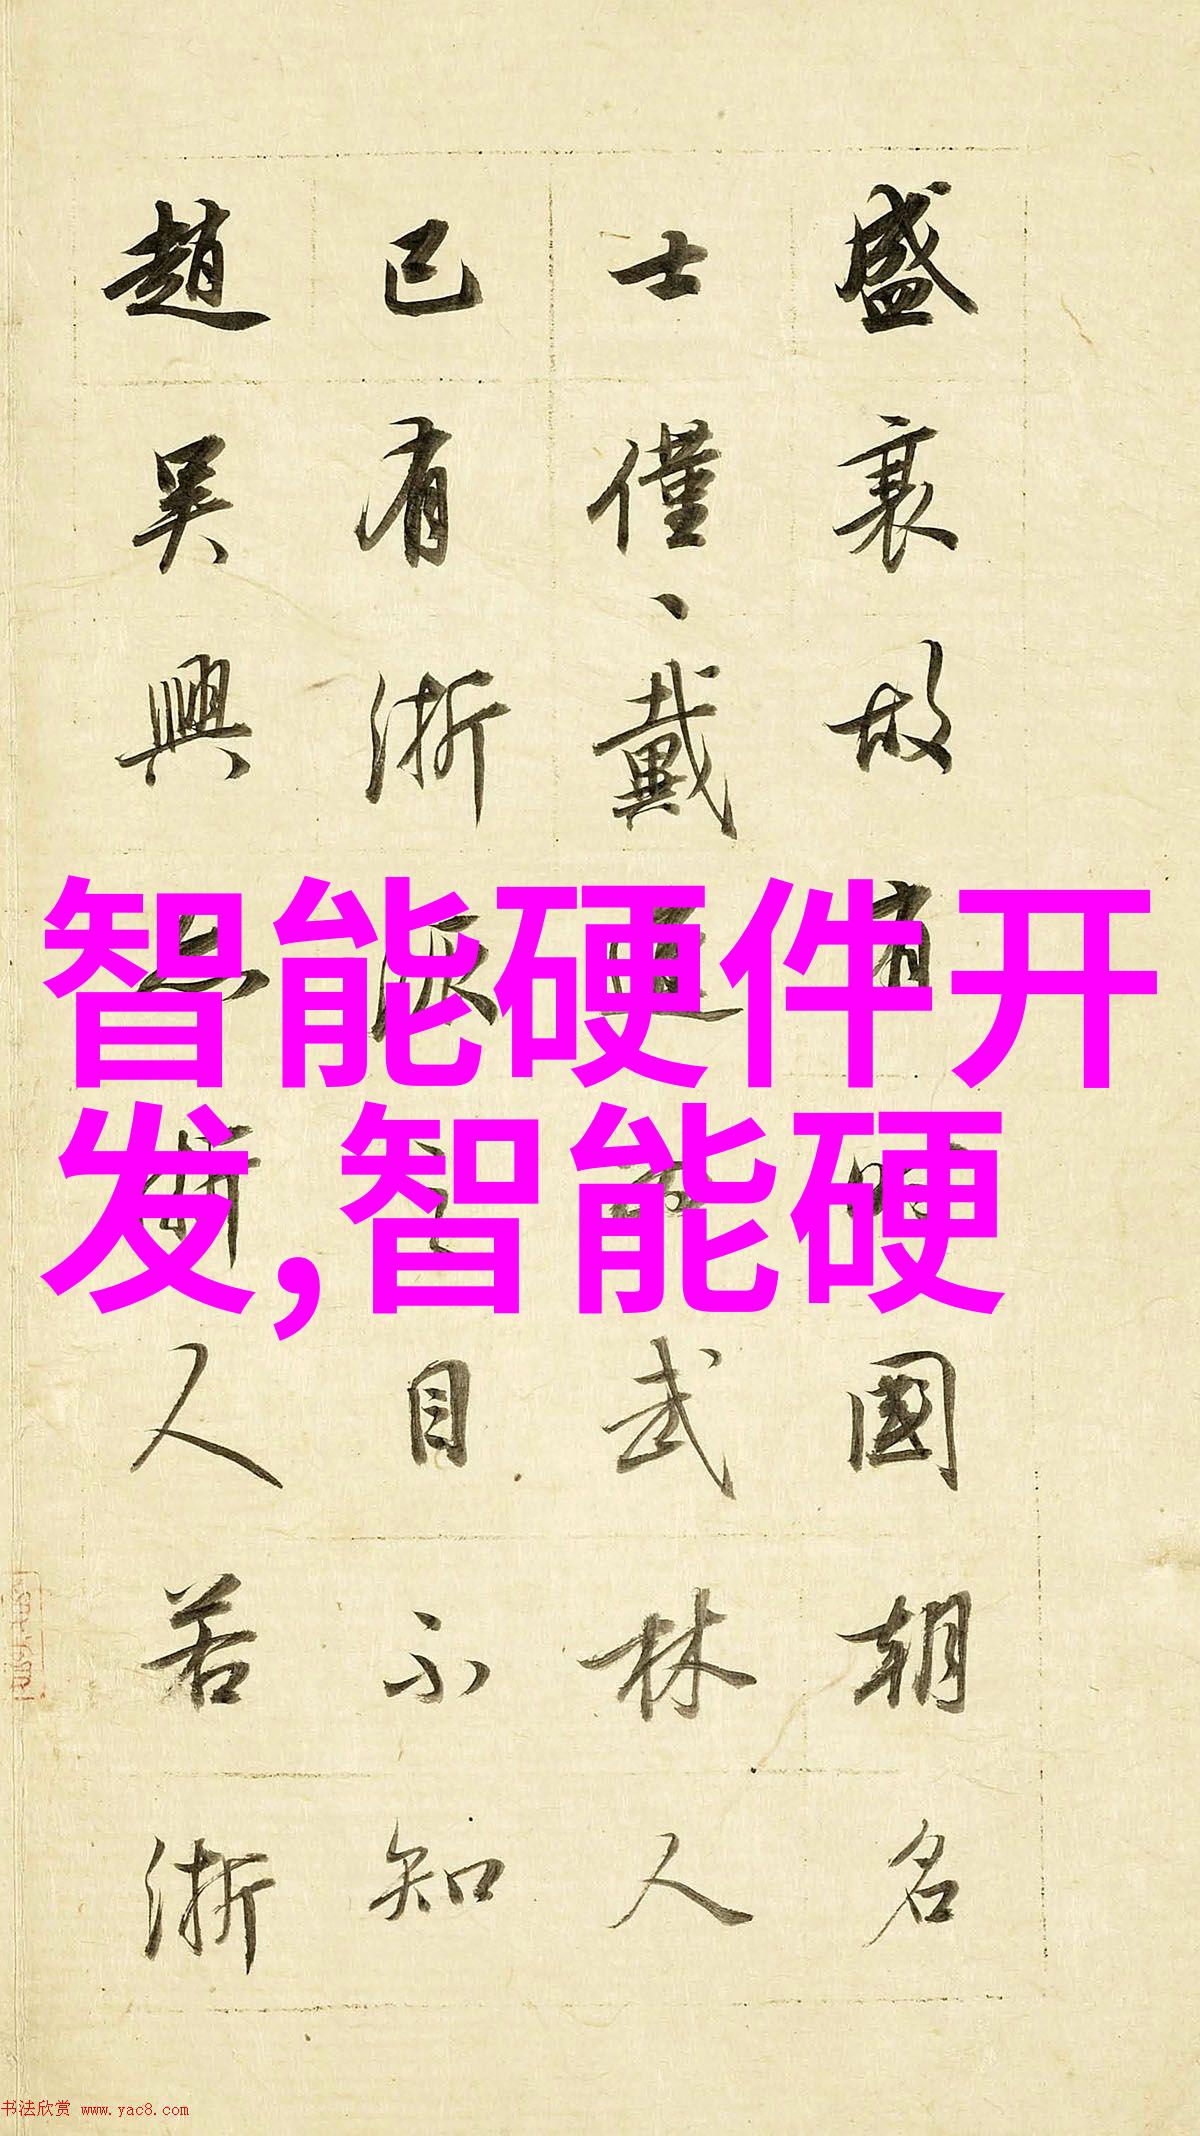 智能硬件开
发,智能硬
盛衰故有國朝名
士僅、戴進武林人
已有浙派目不知
趙吳興亦浙人若浙
书法欣赏 www.yac8.com